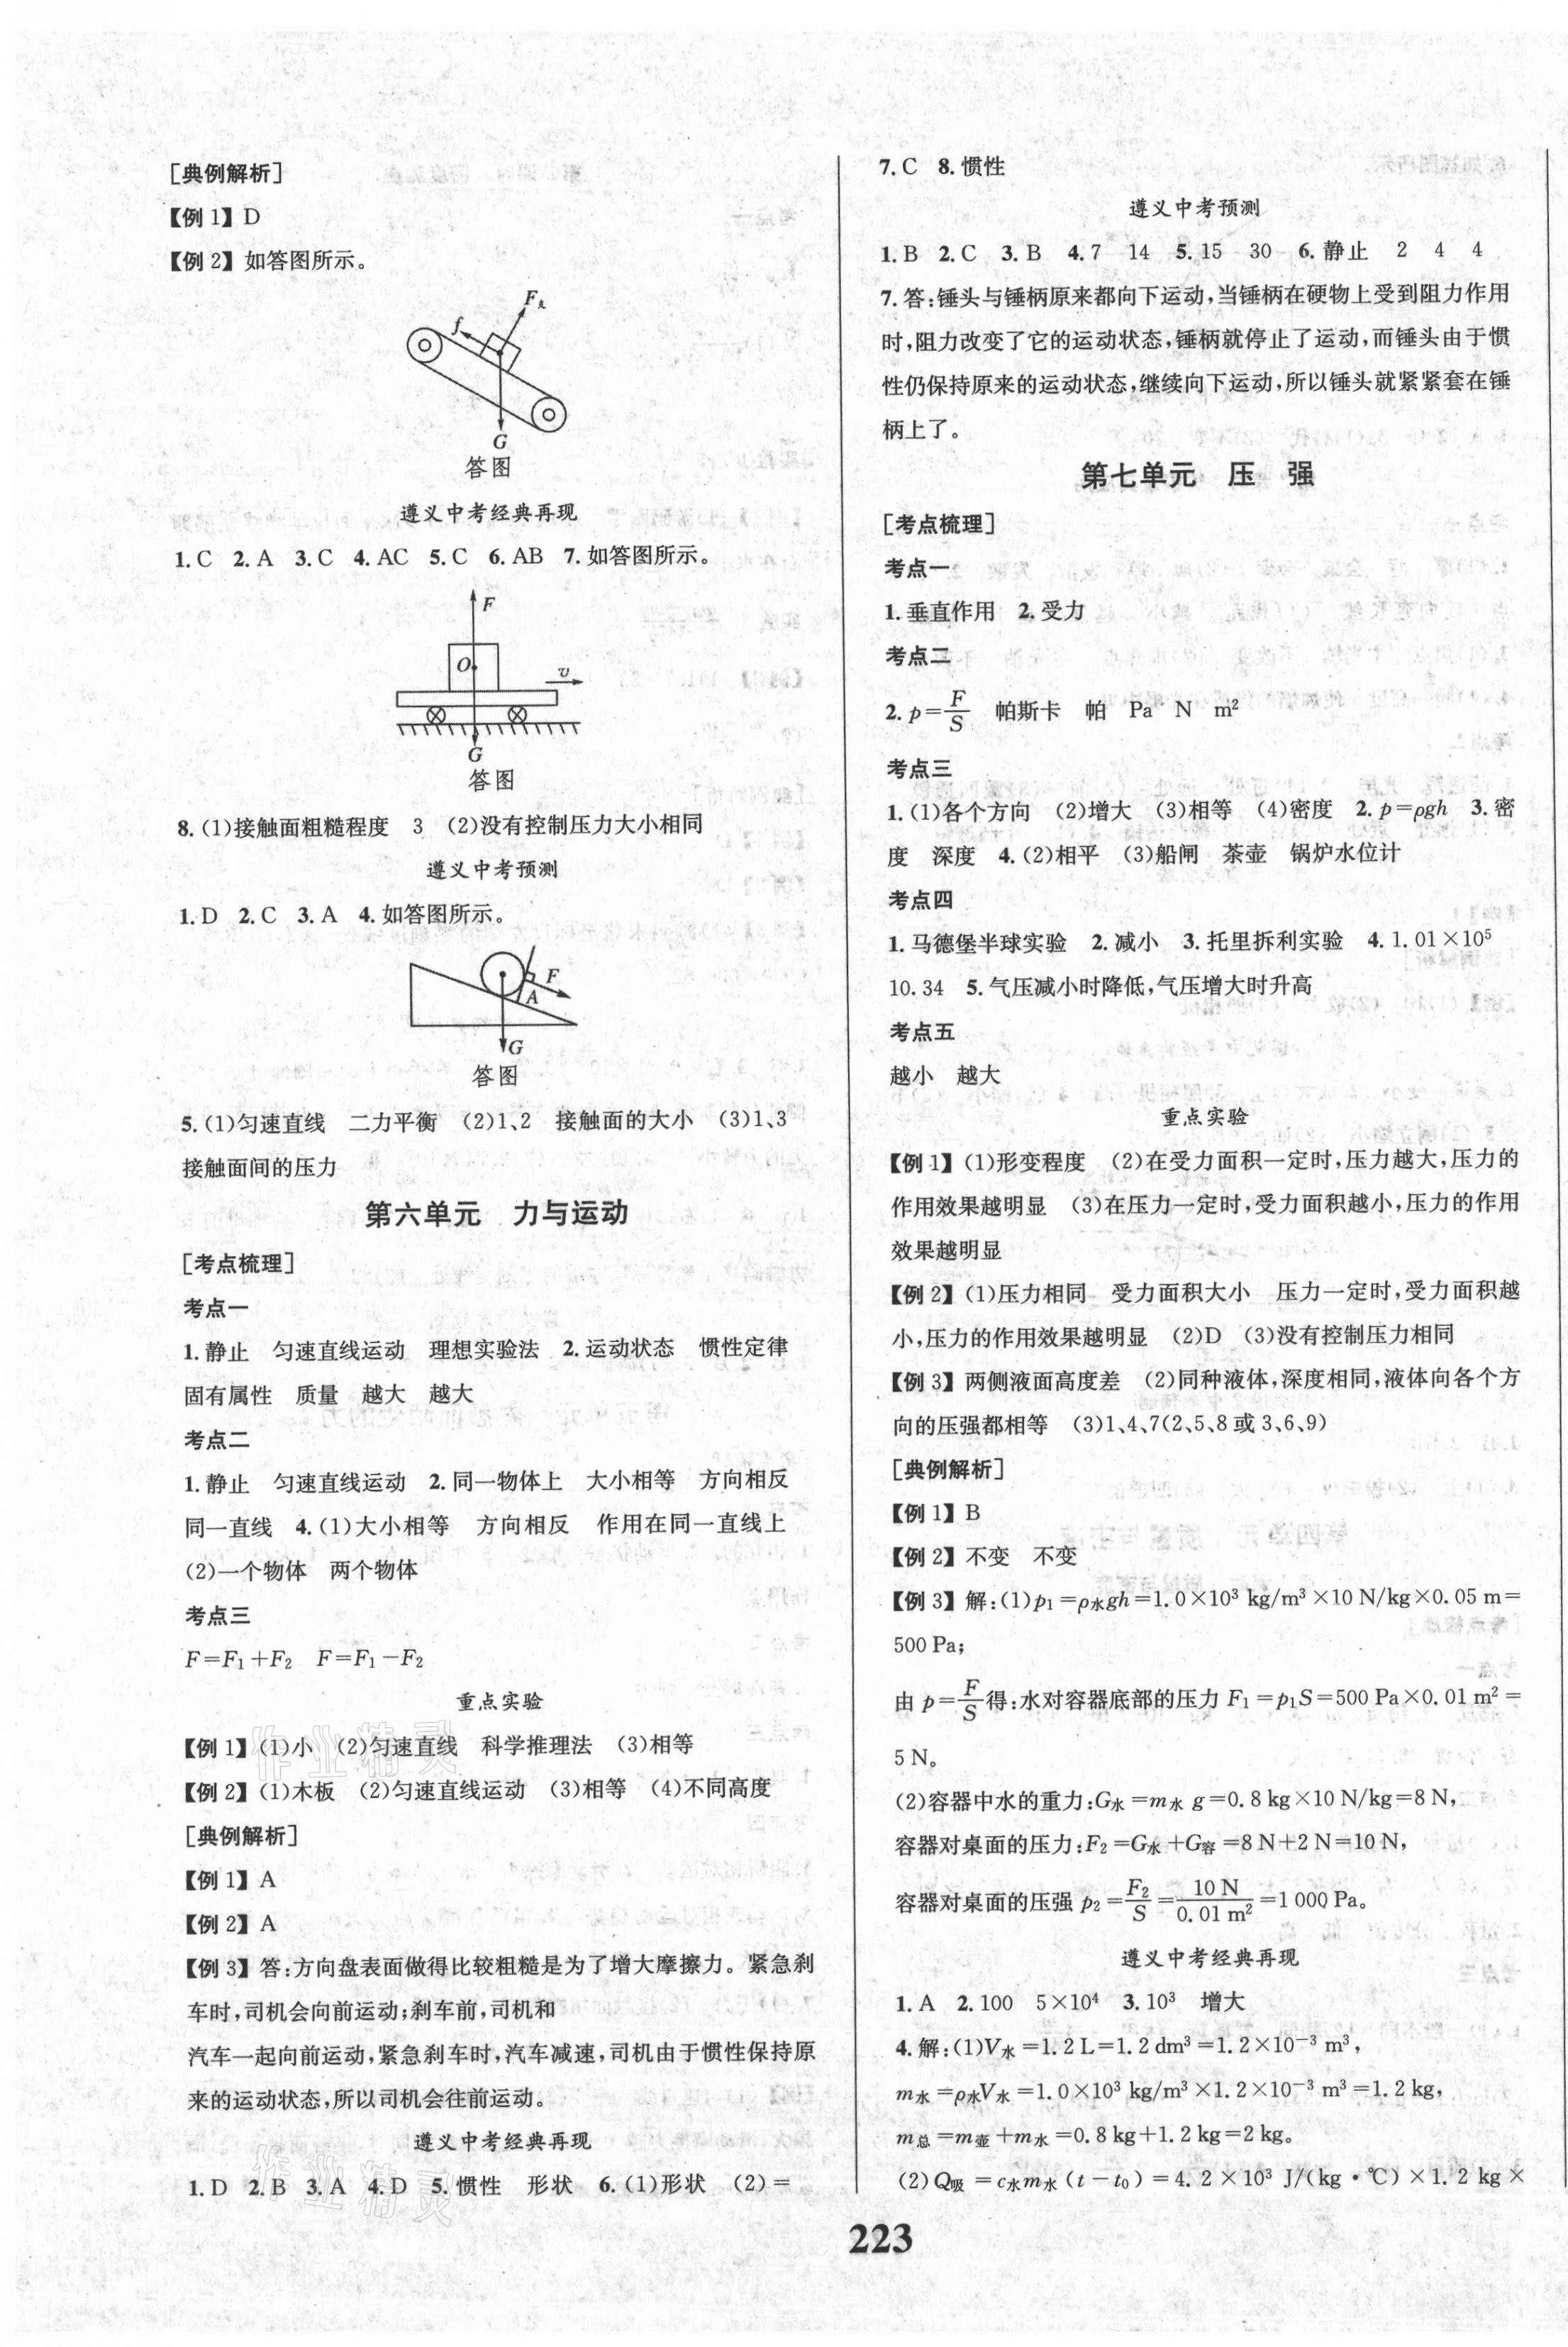 [典例解析]
【例 1】D
【例 2】如答图所示。
F支
f
G
答图
遵义中考经典再现
1. C 2. A 3. C 4. AC 5. C 6. AB 7. 如答图所示。
F
O
v
G
答图
8. (1)接触面粗糙程度 3 (2)没有控制压力大小相同
遵义中考预测
1. D 2. C 3. A 4. 如答图所示。
F
A
G
答图
5. (1)匀速直线 二力平衡 (2)1、2 接触面的大小 (3)1、3
接触面间的压力
第六单元 力与运动
[考点梳理]
考点一
1. 静止 匀速直线运动 理想实验法 2. 运动状态 惯性定律
固有属性 质量 越大 越大
考点二
1. 静止 匀速直线运动 2. 同一物体上 大小相等 方向相反
同一直线 4. (1)大小相等 方向相反 作用在同一直线上
(2)一个物体 两个物体
考点三
F=F₁+F₂ F=F₁-F₂
重点实验
【例 1】(1)小 (2)匀速直线 科学推理法 (3)相等
【例 2】(1)木板 (2)匀速直线运动 (3)相等 (4)不同高度
[典例解析]
【例 1】A
【例 2】A
【例 3】答:方向盘表面做得比较粗糙是为了增大摩擦力。紧急刹
车时,司机会向前运动;刹车前,司机和
汽车一起向前运动,紧急刹车时,汽车减速,司机由于惯性保持原
来的运动状态,所以司机会往前运动。
遵义中考经典再现
1. D 2. B 3. A 4. D 5. 惯性 形状 6. (1)形状 (2)=
7. C 8. 惯性
遵义中考预测
1. B 2. C 3. B 4. 7 14 5. 15 30 6. 静止 2 4 4
7. 答:锤头与锤柄原来都向下运动,当锤柄在硬物上受到阻力作用
时,阻力改变了它的运动状态,锤柄就停止了运动,而锤头由于惯
性仍保持原来的运动状态,继续向下运动,所以锤头就紧紧套在锤
柄上了。
第七单元 压 强
[考点梳理]
考点一
1. 垂直作用 2. 受力
考点二
2. p=F/S 帕斯卡 帕 Pa N m²
考点三
1. (1)各个方向 (2)增大 (3)相等 (4)密度 2. p=ρgh 3. 密
度 深度 4. (2)相平 (3)船闸 茶壶 锅炉水位计
考点四
1. 马德堡半球实验 2. 减小 3. 托里拆利实验 4. 1. 01×10⁵
10. 34 5. 气压减小时降低,气压增大时升高
考点五
越小 越大
重点实验
【例 1】(1)形变程度 (2)在受力面积一定时,压力越大,压力的
作用效果越明显 (3)在压力一定时,受力面积越小,压力的作用
效果越明显
【例 2】(1)压力相同 受力面积大小 压力一定时,受力面积越
小,压力的作用效果越明显 (2)D (3)没有控制压力相同
【例 3】两侧液面高度差 (2)同种液体,深度相同,液体向各个方
向的压强都相等 (3)1、4、7(2、5、8 或 3、6、9)
[典例解析]
【例 1】B
【例 2】不变 不变
【例 3】解:(1)p₁=ρ水gh=1. 0×10³ kg/m³×10 N/kg×0. 05 m=
500 Pa;
由 p=F/S得:水对容器底部的压力 F₁=p₁S=500 Pa×0. 01 m²=
5 N。
(2)容器中水的重力:G水=m水 g=0. 8 kg×10 N/kg=8 N,
容器对桌面的压力:F₂=G水+G容=8 N+2 N=10 N,
容器对桌面的压强 p₂=F₂/S=10 N/0. 01 m²=1 000 Pa。
遵义中考经典再现
1. A 2. 100 5×10⁴ 3. 10³ 增大
4. 解:(1)V水=1. 2 L=1. 2 dm³=1. 2×10⁻³ m³,
m水=ρ水V水=1. 0×10³ kg/m³×1. 2×10⁻³ m³=1. 2 kg,
m总=m壶+m水=0. 8 kg+1. 2 kg=2 kg。
(2)Q吸=c水m水(t-t₀)=4. 2×10³ J/(kg·℃)×1. 2 kg×
223
作业精灵
作业精灵